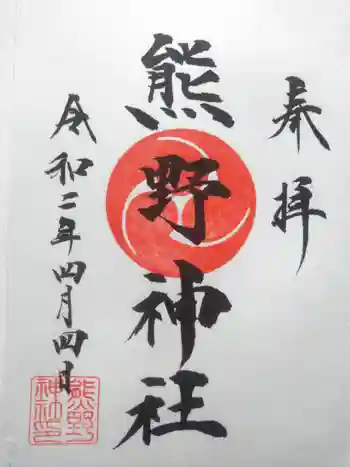 奉拝
熊野神社
令和二年四月四日
熊野神社印